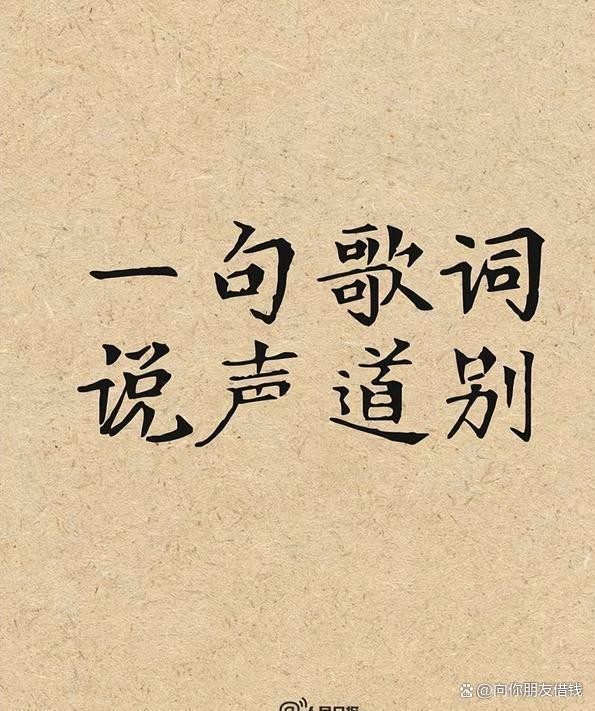 一句歌词
说声道别
@向你朋友借钱